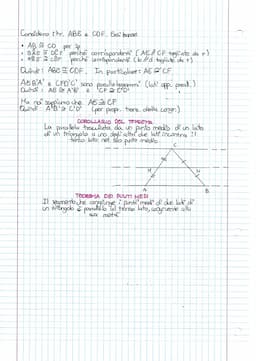 Considero i tr. ABE e CDF. Essi hanno:
• AB ≅ CD per hp
perché corrispondenti (AE // CF tagliate da r)
perché corrispondenti (b // d tagliate da r)
Quindi: ABE ≅ CDF. In particolare: AE ≅ CF
AEB'A' e CFD'C' sono parallelogrammi (lati opp. parall.)
Quindi: AE ≅ A'B' e CF ≅ C'D'
Ma noi sappiamo che AE ≅ CF
Quindi A'B' ≅ C'D' (per propr. trans. della congr.)
COROLLARIO DEL TEOREMA
La parallela tracciata da un punto medio di un lato
di un triangolo a uno degli altri due lati incontra il
terzo lato nel suo punto medio.
C
M
N
A
B
TEOREMA DEI PUNTI MEDI
Il segmento che congiunge i punti medi di due lati di
un triangolo è parallelo al terzo lato, congruente alla
sua metà